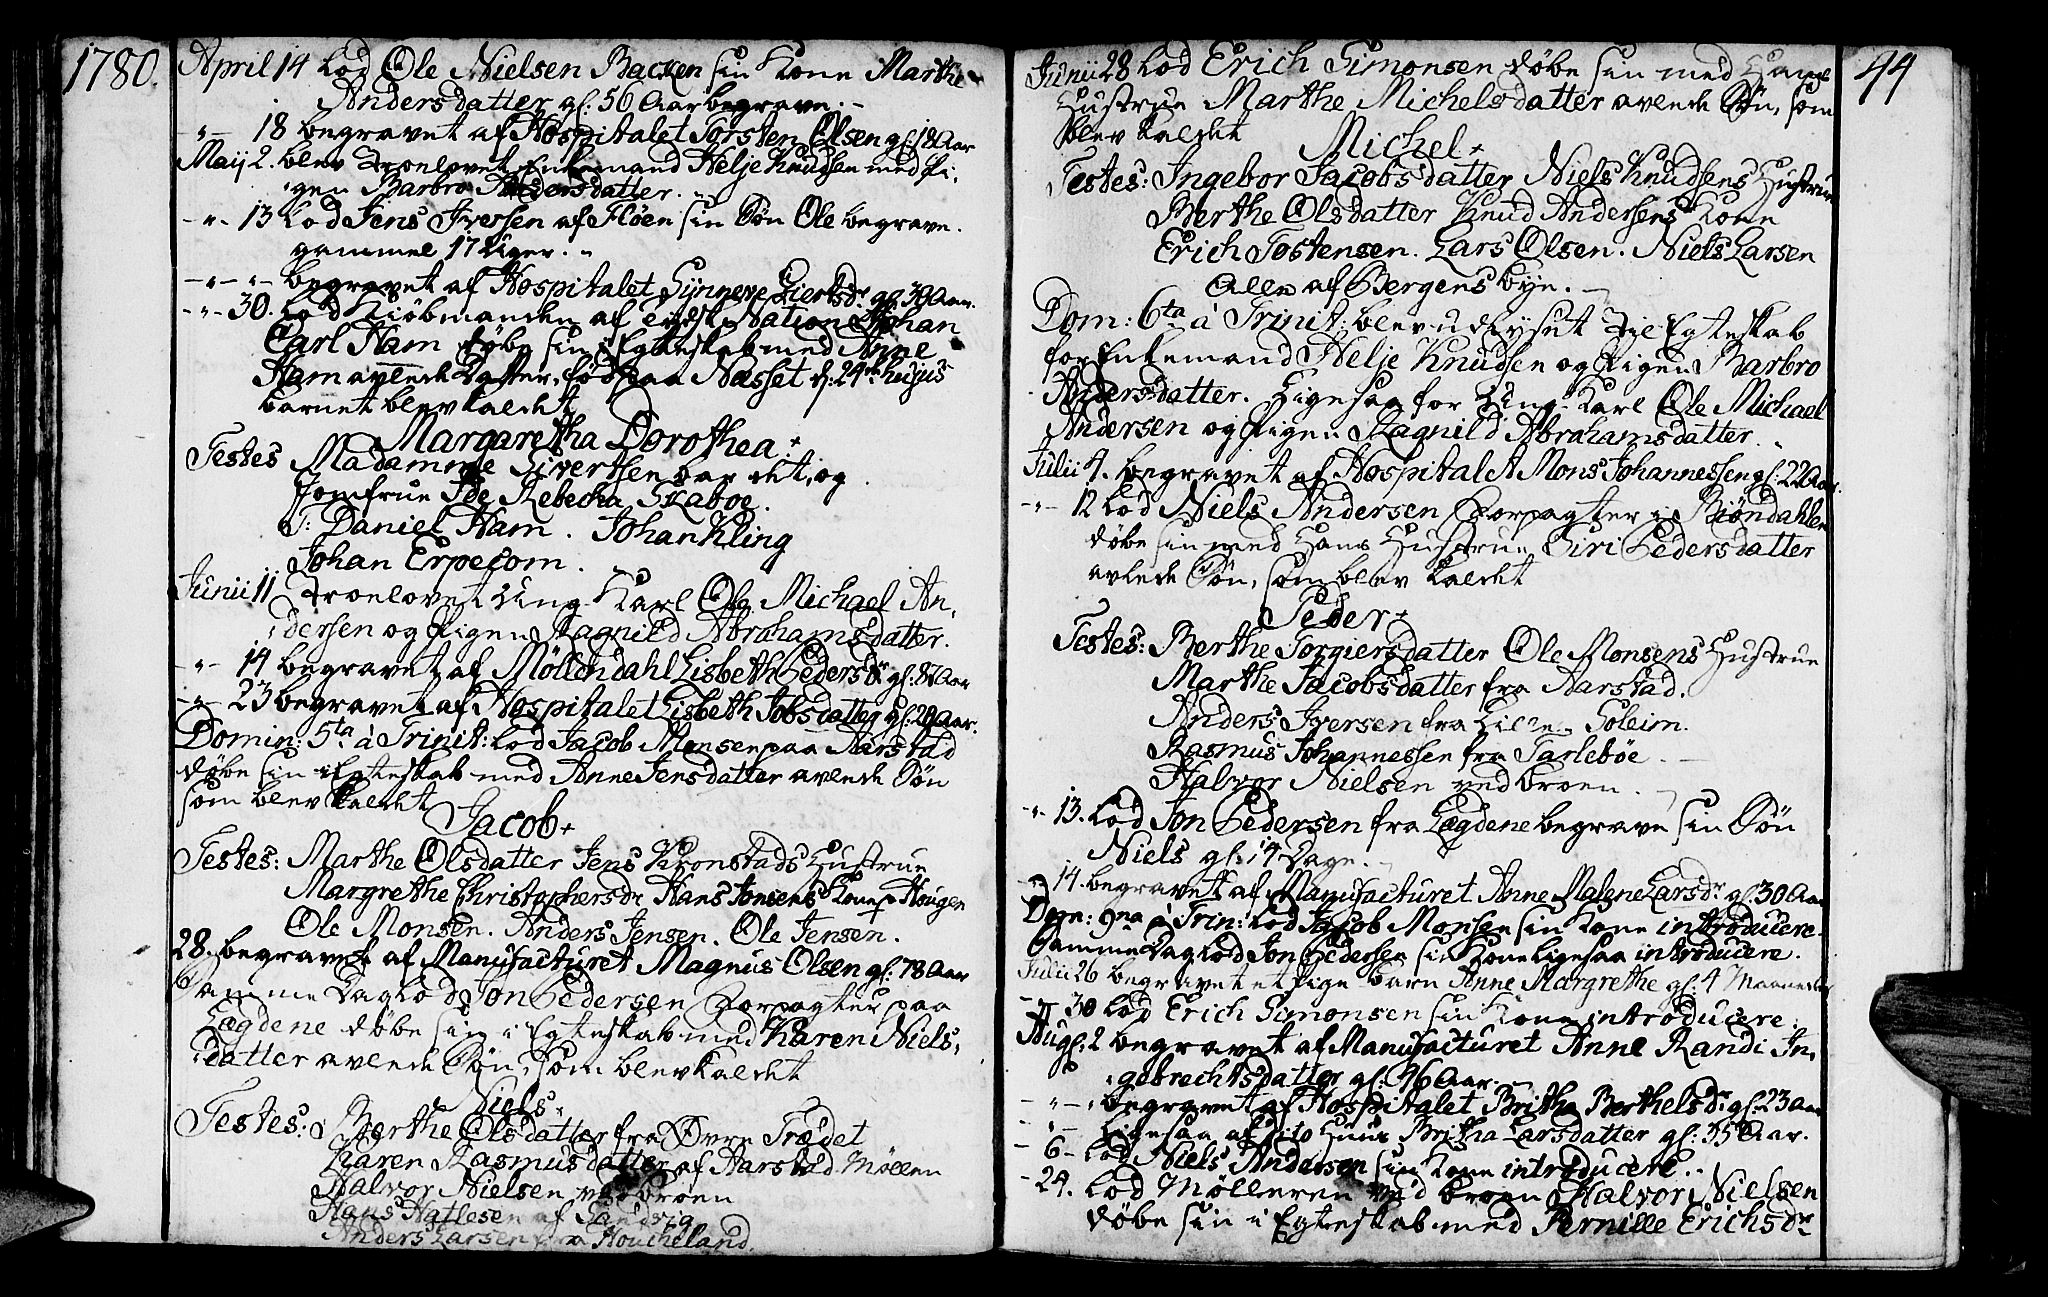 1780.
April 14 Lod Ole Nielsen Backen sin Kone Marthe
Andersdatter gl. 56 Aar begrave. -
-"- 18 begravet af Hospitalet Torsten Olsen gl: 18 Aar
Maij 2. blev Troelovet Enkemand Helje Knudsen med Pi,
gen Barbro Andersdatter.
-"- 13 Lod Jens Iversen af Fløen sin Søn Ole begrave.
gammel 17 Uger. "
-"-"- begravet af Hospitalet Synneve Giertsdr gl. 30 Aar.
-"- 30. Lod Kiøbmanden af tydsk Nation Johan
Carl Ham døbe sin i Egteskab med Anne
Ham avlede Datter, fød paa Næsset d. 24de hujus
barnet blev kaldet
Margaretha Dorothea +
Testes Madamme Siverthsen bar det, og
Jomfrue Ide Rebecha Skaboe.
T: Daniel Ham. Johan Kling
Johan Erpecom.
Junii 11 Troelovet Ung Karl Ole Michael An,
dersen og Pigen Ragnild Abrahamsdatter.
-"- 14 begravet af Møllendahl Lisbeth Pedersdr gl: 87 Aar
-"- 23 begravet af Hospitalet Lisbeth Jobsdatter gl: 20 Aar.
Domin: 5ta à Trinit: Lod Jacob Monsen paa Aarstad
døbe sin i Egteskab med Anne Jensdatter avlede Søn
som blev kaldet
Jacob +
Testes: Marthe Olsdatter Jens Kronstads Hustrue
Margrethe Christophersdr Hans Jonsens Kone p Hougen
Ole Monsen. Anders Jensen. Ole Jensen.
28. begravet af Manufacturet Magnus Olsen gl: 78 Aar
Samme Dag Lod Jon Pedersen Forpagter paa
Lægdene døbe sin i Egteskab med Karen Niels,
datter avlede Søn, som blev kaldet
Niels
Testes: Berthe Olsdatter fra Øvre Trædet
Karen Rasmusdatter af Aarstad Møllen
Halvor Nielsen ved broen
Hans Hatlesen af Sandvig
Anders Larsen fra Houcheland.
44
Junii 28 Lod Erich Simonsen døbe sin med Hans
Hustrue Marthe Michelsdatter avlede Søn, som
blev kaldet
Michel +
Testes: Ingebor Jacobsdatter Niels Knudsens Hustrue
Berthe Olsdatter Knud Andersens Kone
Erich Tostensen. Lars Olsen. Niels Larsen
Alle af Bergens byn.
Dom: 6ta à Trinit: blev udlyset til Egteskab
for Enkemand Helje Knudsen og Pigen Barbro
Andersdatter. Ligesaa for Ung Karl Ole Michael
Andersen og Pigen Ragnild Abrahamsdatter.
Julii 4. begravet af Hospitalet Mons Johannessen gl: 22 Aar.
-"- 12 Lod Niels Andersen Forpagter i Biöndahlen
døbe sin med Hans Hustrue Siri Pedersdatter
avlede Søn, som blev kaldet
Peder +
Testes: Berthe Torgiersdatter Ole Monsens Hustrue
Marthe Jacobsdatter fra Aarstad.
Anders Iversen fra Lille Soleim.
Rasmus Johannessen fra Tarlebøe
Halvor Nielsen ved broen.
-"- 13. Lod Jon Pedersen fra Lægdene begrave sin Søn
Niels gl: 14 Dage.
-"- 14. begravet af Manufacturet Anne Malene Larsdr gl: 30 Aar
Dom: 9na à Trin: Lod Jacob Monsen sin Kone introducere.
Samme Dag Lod Jon Pedersen sin Kone ligesaa introducere.
Julii 26 begravet et Pige barn Anne Margrethe gl: 4 Maaneder
-"- 30 Lod Erich Simonsen sin Kone introducere.
Aug: 2 begravet af Manufacturet Anne Randi In,
gebrechtsdatter gl: 76 Aar.
-"-" begravet af Hospitalet Britha Berthelsdr gl: 23 Aar
-"- Ligesaa af dito Huus Britha Larsdatter gl: 35 Aar.
- 6 - Lod Niels Andersen sin Kone introducere.
- 24. Lod Mølleren ved broen Halvor Nielsen
døbe sin i Egteskab med Pernille Erichsdr